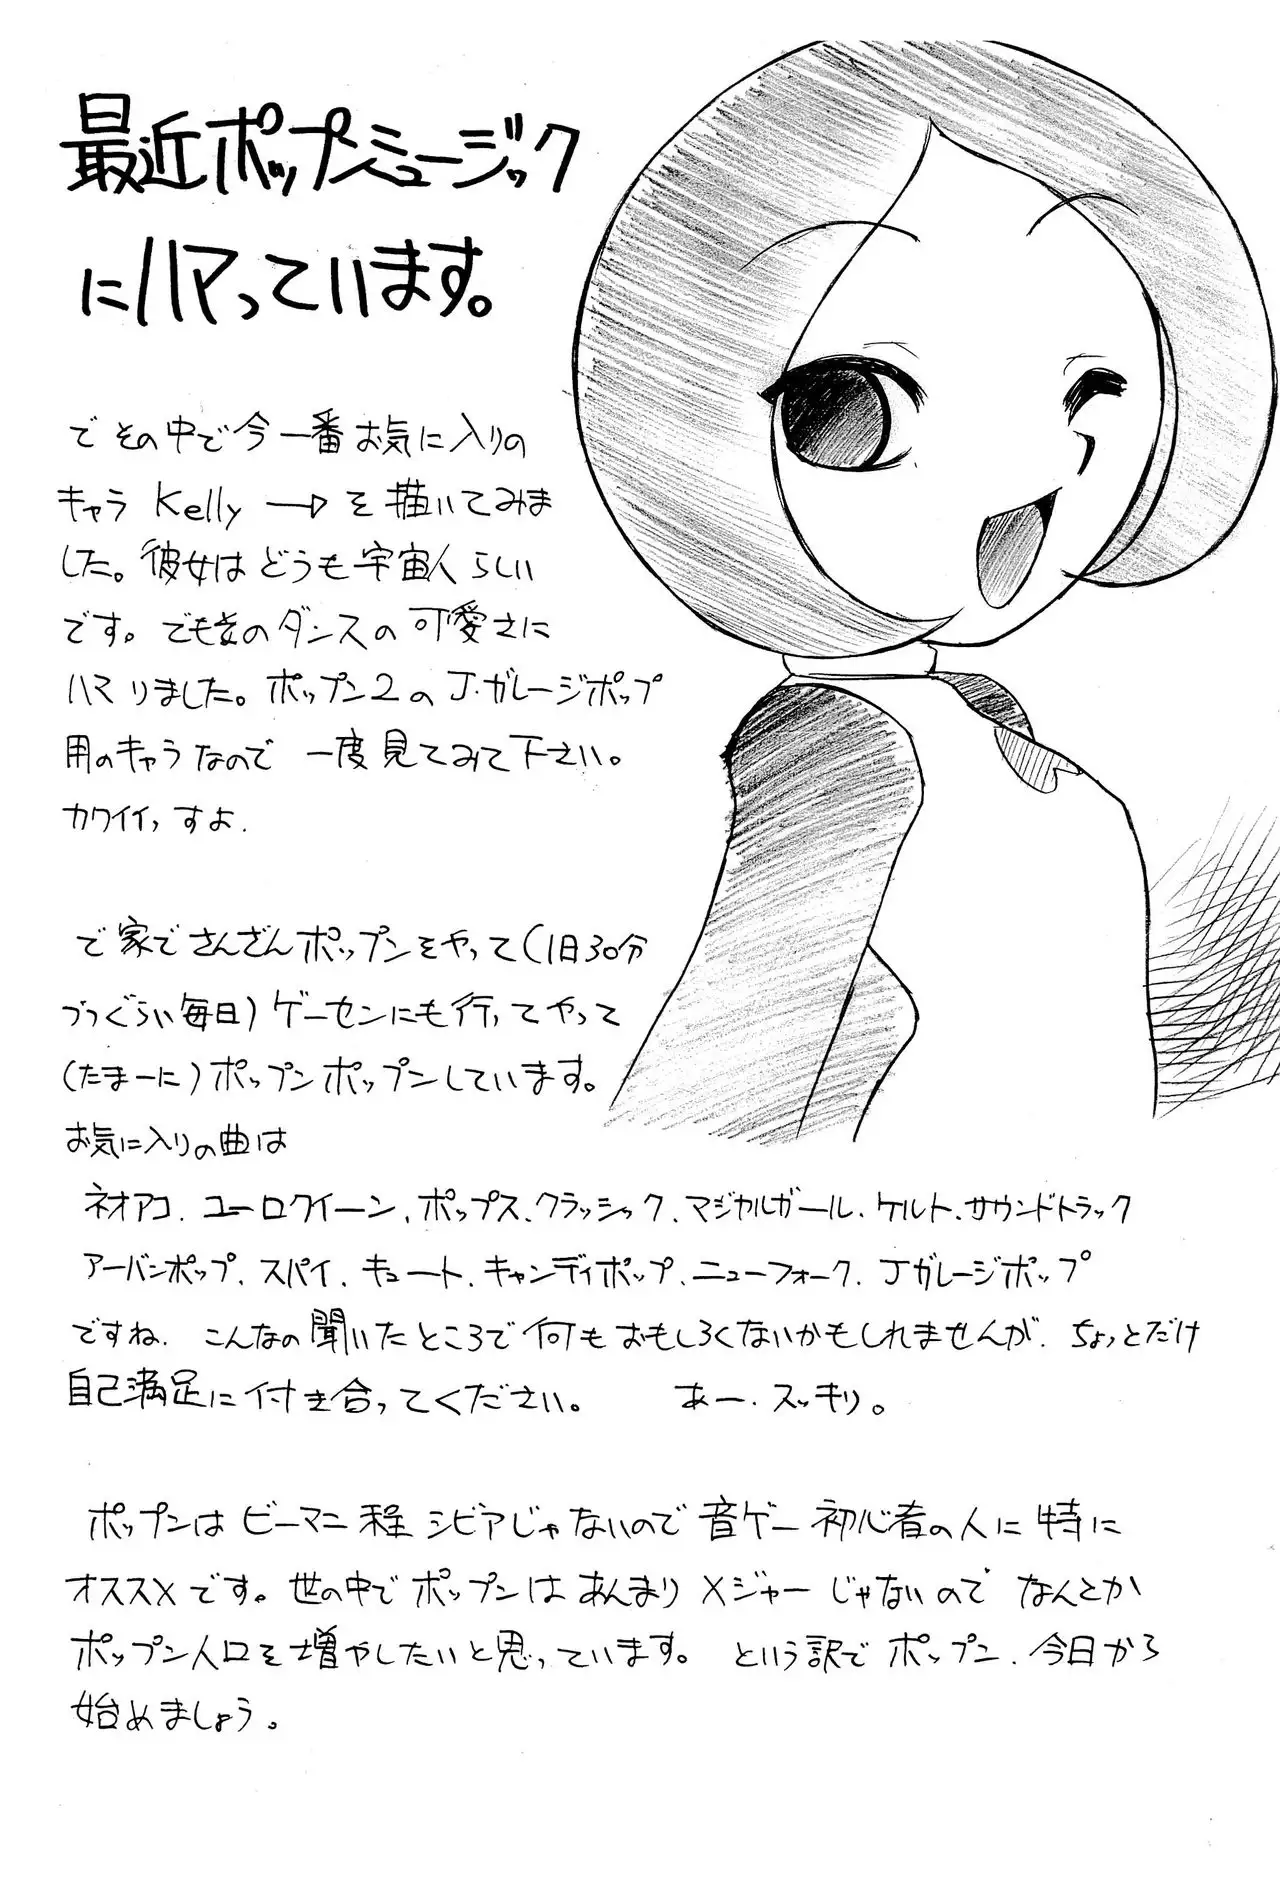 最近ポップンミュージック
にハマっています。
でその中で今一番お気に入りの
キャラ Kelly → を描いてみま
した。彼女はどうも宇宙人らしい
です。でも女のダンスの可愛さに
ハマりました。ポップン2のJ・ガレージポップ
用のキャラなので 一度見てみて下さい。
カワイイっすよ.
で家でさんざんポップンをやって(1日30分
づつぐらい毎日)ゲーセンにも行ってやって
(たまーに)ポップンポップンしています。
お気に入りの曲は
ネオアコ. ユーロクイーン. ポップス. クラッシック. マジカルガール. ケルト. サウンドトラック
アーバンポップ. スパイ. キュート. キャンディポップ. ニューフォーク. Jガレージポップ
ですね. こんなの聞いたところで何もおもしろくないかもしれませんが. ちょっとだけ
自己満足に付き合ってください。 あー. スッキリ。
ポップンはビーマニ程シビアじゃないので音ゲー初心者の人に特に
オススメです。世の中でポップンはあんまりメジャーじゃないので なんとか
ポップン人口を増やしたいと思っています。 という訳でポップン. 今日から
始めましょう。